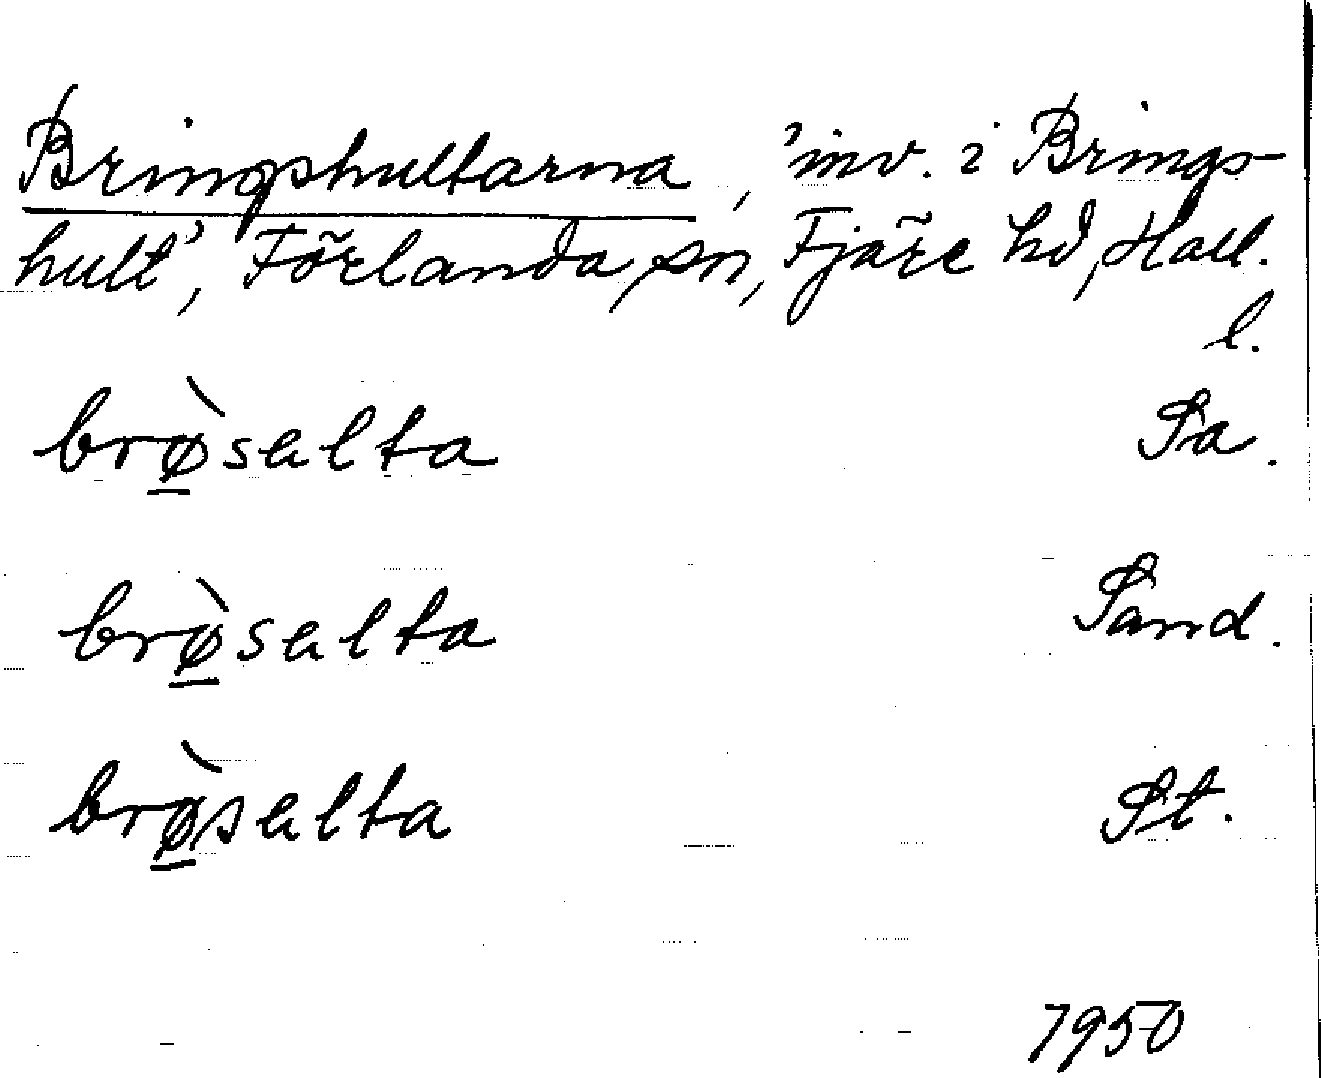 Bringshultarna, 'inv. i Brings-
hult', Förlanda sn, Fjäre hd, Hall.
l.
brø̱̀sɐlta Sa.
brø̱̀sɐlta Sand.
brø̱̀sɐlta St.
1950